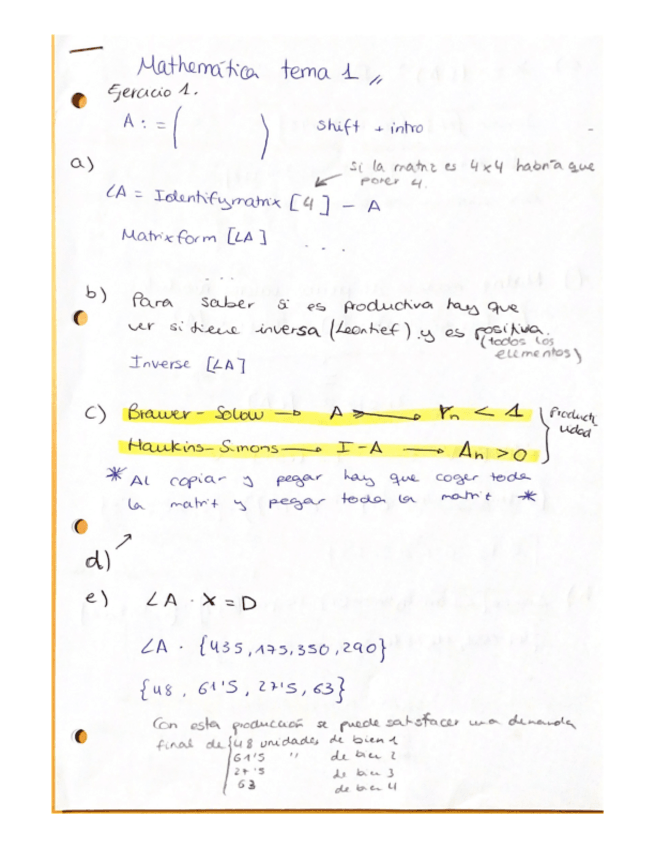 Mathemática tema 1 //
Ejercicio 1.
A := (        )    shift + intro
a)
Si la matriz es 4x4 habría que
poner 4.
LA = Identifymatrix [4] - A
Matrixform [LA]    . . .
. . .
b) Para saber si es productiva hay que
ver si tiene inversa (Leontief) y es positiva.
(todos los
elementos)
Inverse [LA]
c) Brawer-Solow → A → rn < 1
Productividad
Hawkins-Simons → I-A → An > 0
* Al copiar y pegar hay que coger toda
la matrit y pegar toda la matrit *
d) ↗
e) LA · X = D
LA · {435, 175, 350, 290}
{48, 61'5, 27'5, 63}
Con esta producción se puede satisfacer una demanda
final de {48 unidades de bien 1
61'5 " de bien 2
27'5 de bien 3
63 de bien 4